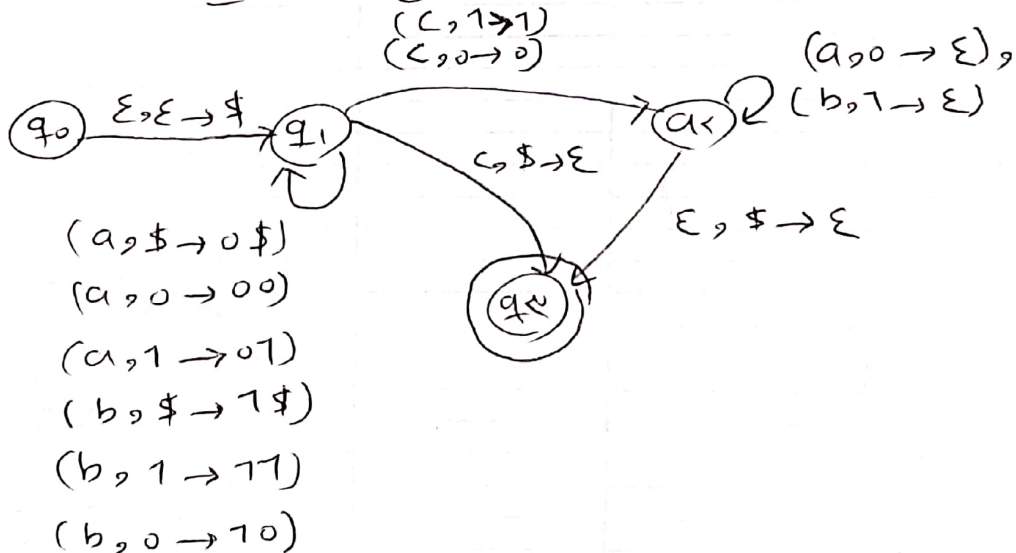 (c, 1→1)
(c, 0→0)
(a, 0 → ε),
(b, 1 → ε)
q0
ε, ε → $
q1
q2
c, $→ε
ε, $ → ε
(a, $ → 0$)
(a, 0 → 00)
(a, 1 → 01)
(b, $ → 1$)
(b, 1 → 11)
(b, 0 → 10)